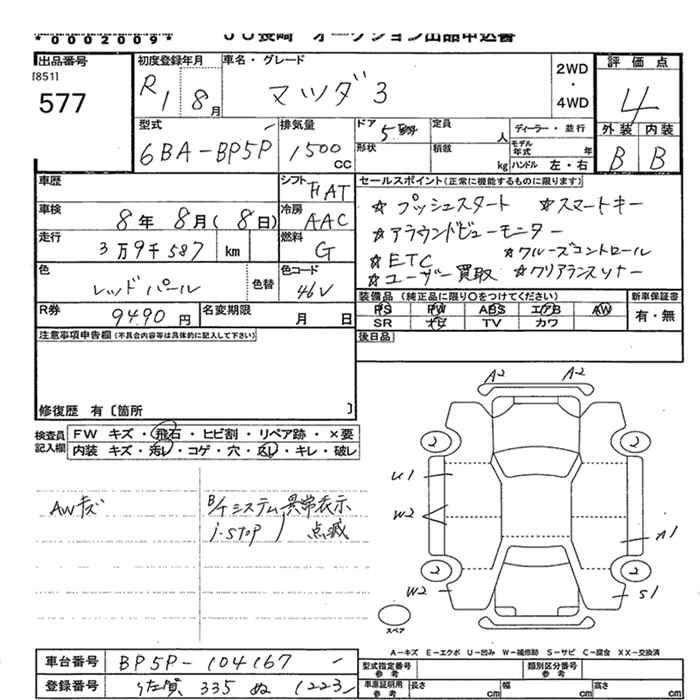 *0002009*
JU長崎 オークション出品申込書
出品番号
[851]
577
初度登録年月
R1 8月
車名・グレード
マツダ3
2WD
・
4WD
評価点
4
外装 内装
B B
型式
6BA-BP5P
排気量
1500 CC
ドア 5
形状
定員 人
積載 kg
ディーラー・並行
モデル年式 年
ハンドル 左・右
車歴
シフト FAT
車検 8年 8月(8日)
冷房 AAC
走行 3万9千587 km
燃料 G
色 レッドパール 色替
色コード 46V
R券 9490円
名変期限 月 日
セールスポイント(正常に機能するものに限ります)
☆プッシュスタート ☆スマートキー
☆アラウンドビューモニター
☆ETC ☆クルーズコントロール
☆ユーザー買取 ☆クリアランスソナー
装備品(純正品に限り○をつけてください)
新車保証書
PS PW ABS エアB AW
SR ナビ TV カワ
有・無
注意事項申告欄(不具合内容等は具体的に記入して下さい)
後日品
修復歴 有〔箇所 〕
検査員記入欄
FW キズ・飛石・ヒビ割・リペア跡・×要
内装 キズ・汚れ・コゲ・穴・スレ・キレ・破レ
AWキズ
B/Tシステム異常表示
i-stop 点滅
A2 A2
2 2
U1
W2
A1
2 2
W2 S1
スペア
A-キズ E-エクボ U-凹み W-補修跡 S-サビ C-腐食 XX-交換済
車台番号 BP5P-104167
登録番号 佐賀 335 ぬ 1223
型式指定番号 参考
類別区分番号 参考
車庫証明用 参考
長さ cm 幅 cm 高さ cm